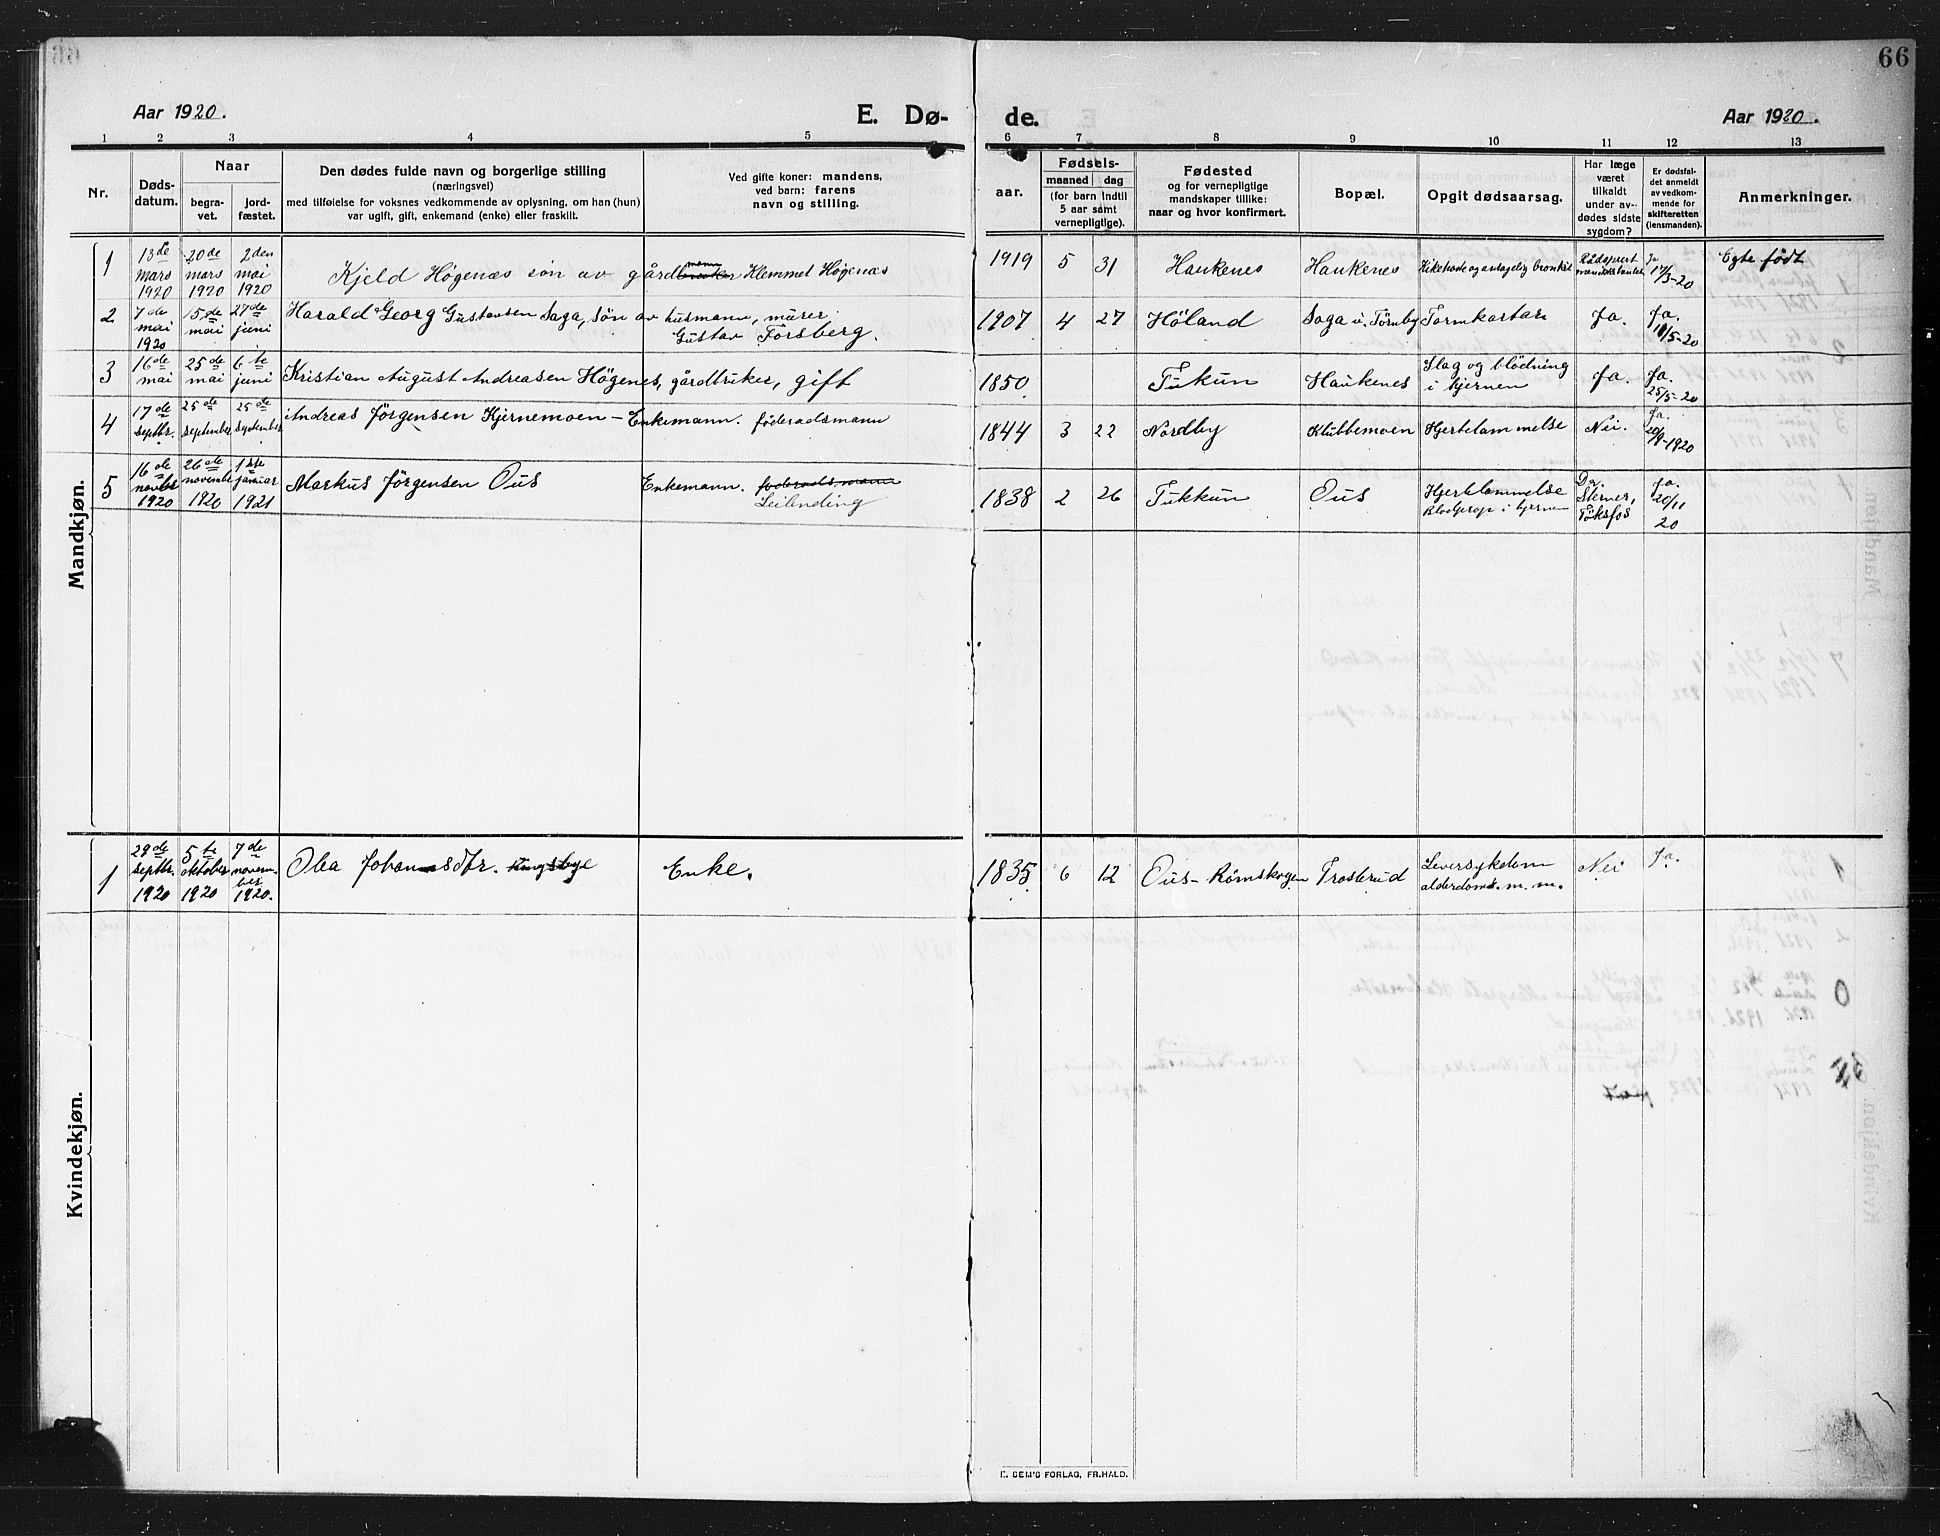 66
Aar 1920.
E. Dø-
de.
Aar 1920.
1 2 3 4 5 6 7 8 9 10 11 12 13
Nr.
Døds-
datum.
Naar
begra-
vet.
jord-
fæstet.
Den dødes fulde navn og borgerlige stilling
(næringsvei)
med tilføielse for voksnes vedkommende av oplysning, om han (hun)
var ugift, gift, enkemand (enke) eller fraskilt.
Ved gifte koner: mandens,
ved barn: farens
navn og stilling.
Fødsels-
aar.
maaned dag
(for barn indtil
5 aar samt
vernepligtige).
Fødested
og for vernepligtige
mandskaper tillike:
naar og hvor konfirmert.
Bopæl.
Opgit dødsaarsag.
Har læge
været
tilkaldt
under av-
dødes sidste
sygdom?
Er dødsfal-
det anmeldt
av vedkom-
mende for
skifteretten
(lensmanden).
Anmerkninger.
Mandkjøn.
1
13de
mars
1920
20de
mars
1920
2den
mai
1920
Kjeld Högenæs søn av gårdbruker
mann
Klemmet Högenæs
1919 5 31
Haukenes
Haukenes
Kikhoste og bronkit
Ja
17/3-20
Egte født
2
7de
mai
1920
15de
mai
27de
juni
Harald Georg Gustavsen Saga, søn av husmann, murer
Gustav Forsberg.
1907 4 27
Høland
Saga u. Törnby
Tarmkatarr
Ja.
Ja.
18/5-20
3
16de
mai
25de
mai
6te
juni
Kristian August Andreasen Högenes, gårdbruker, gift
1850
Tukun
Haukenes
Slag og blödning
i hjernen
Ja.
Ja.
25/5-20
4
17de
septbr.
25de
september
25de
september
Andreas Jörgensen Kjernemoen - Enkemann. föderaadsmann
1844 3 22
Nordby
Klubbemoen
Hjertelammelse
Nei.
Ja.
20/9-1920
5
16de
novbr
1920
26de
november
1920
1ste
januar
1921
Markus Jörgensen Ous
Enkemann. foderaadsmann
Leilending
1838 2 26
Tukkun
Ous
Hjertelammelse
Blodprop i hjernen
Dr.
Sterner,
Töksfos
Ja.
20/11
20
Kvindekjøn.
1
29de
septbr.
1920
5te
oktober
1920
7de
novem-
ber
1920.
Olea Johannesdtr. Kingsbye
Enke.
1835 6 12
Ous-Römskogen
Trosterud
Leversykdom
alderdom m. m.
Nei
Ja.
E. SEM'S FORLAG, FR.HALD.